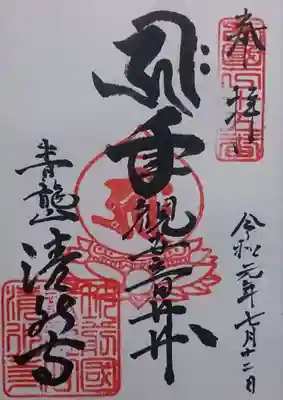 奉拝
ह्रीः
千手観世音𦬇
青龍山
清水寺
令和元年七月十二日